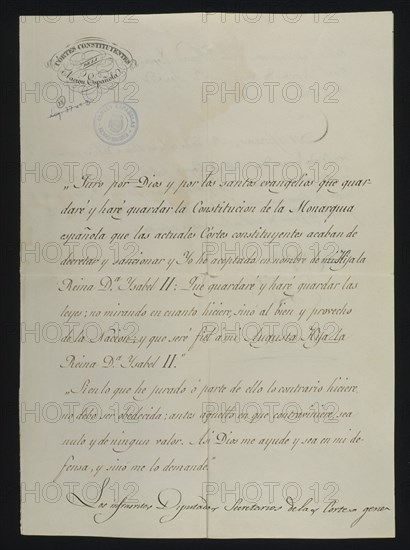 CÓRTES CONSTITUYENTES
DE LA
Nacion Española
„Juro por Dios y por los santos evangelios que guar-
daré y haré guardar la Constitucion de la Monarquia
española que las actuales Córtes constituyentes acaban de
decretar y sancionar y Yo he aceptado en nombre de mi Hija la
Reina D.ª Isabel II: Que guardaré y haré guardar las
leyes; no mirando en cuanto hiciere, sino al bien y provecho
de la Nacion; y que seré fiel a mi Augusta Hija la
Reina D.ª Isabel II."
„Si en lo que he jurado ó parte de ello lo contrario hiciere,
no debo ser obedecida: antes aquello en que contraviniere, sea
nulo y de ningun valor. Asi Dios me ayude y sea en mi de-
fensa, y sinó me lo demande"
Los infrascritos Diputados Secretarios de las Cortes gene-
PHOTO12